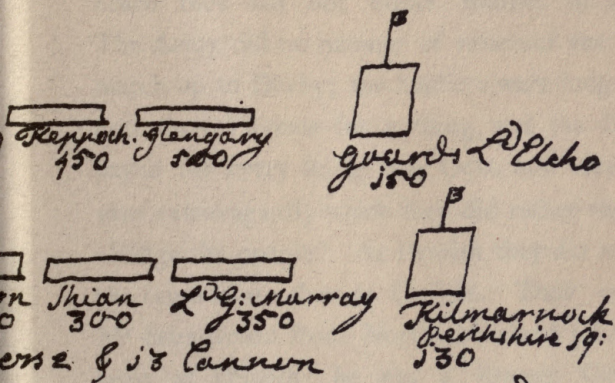 Keppoch. Glengary
450 500
Guards Lᵈ Elcho
150
Shian Lᵈ G: Murray
300 350
Kilmarnock
Perthshire Sq:
130
& 13 Cannon